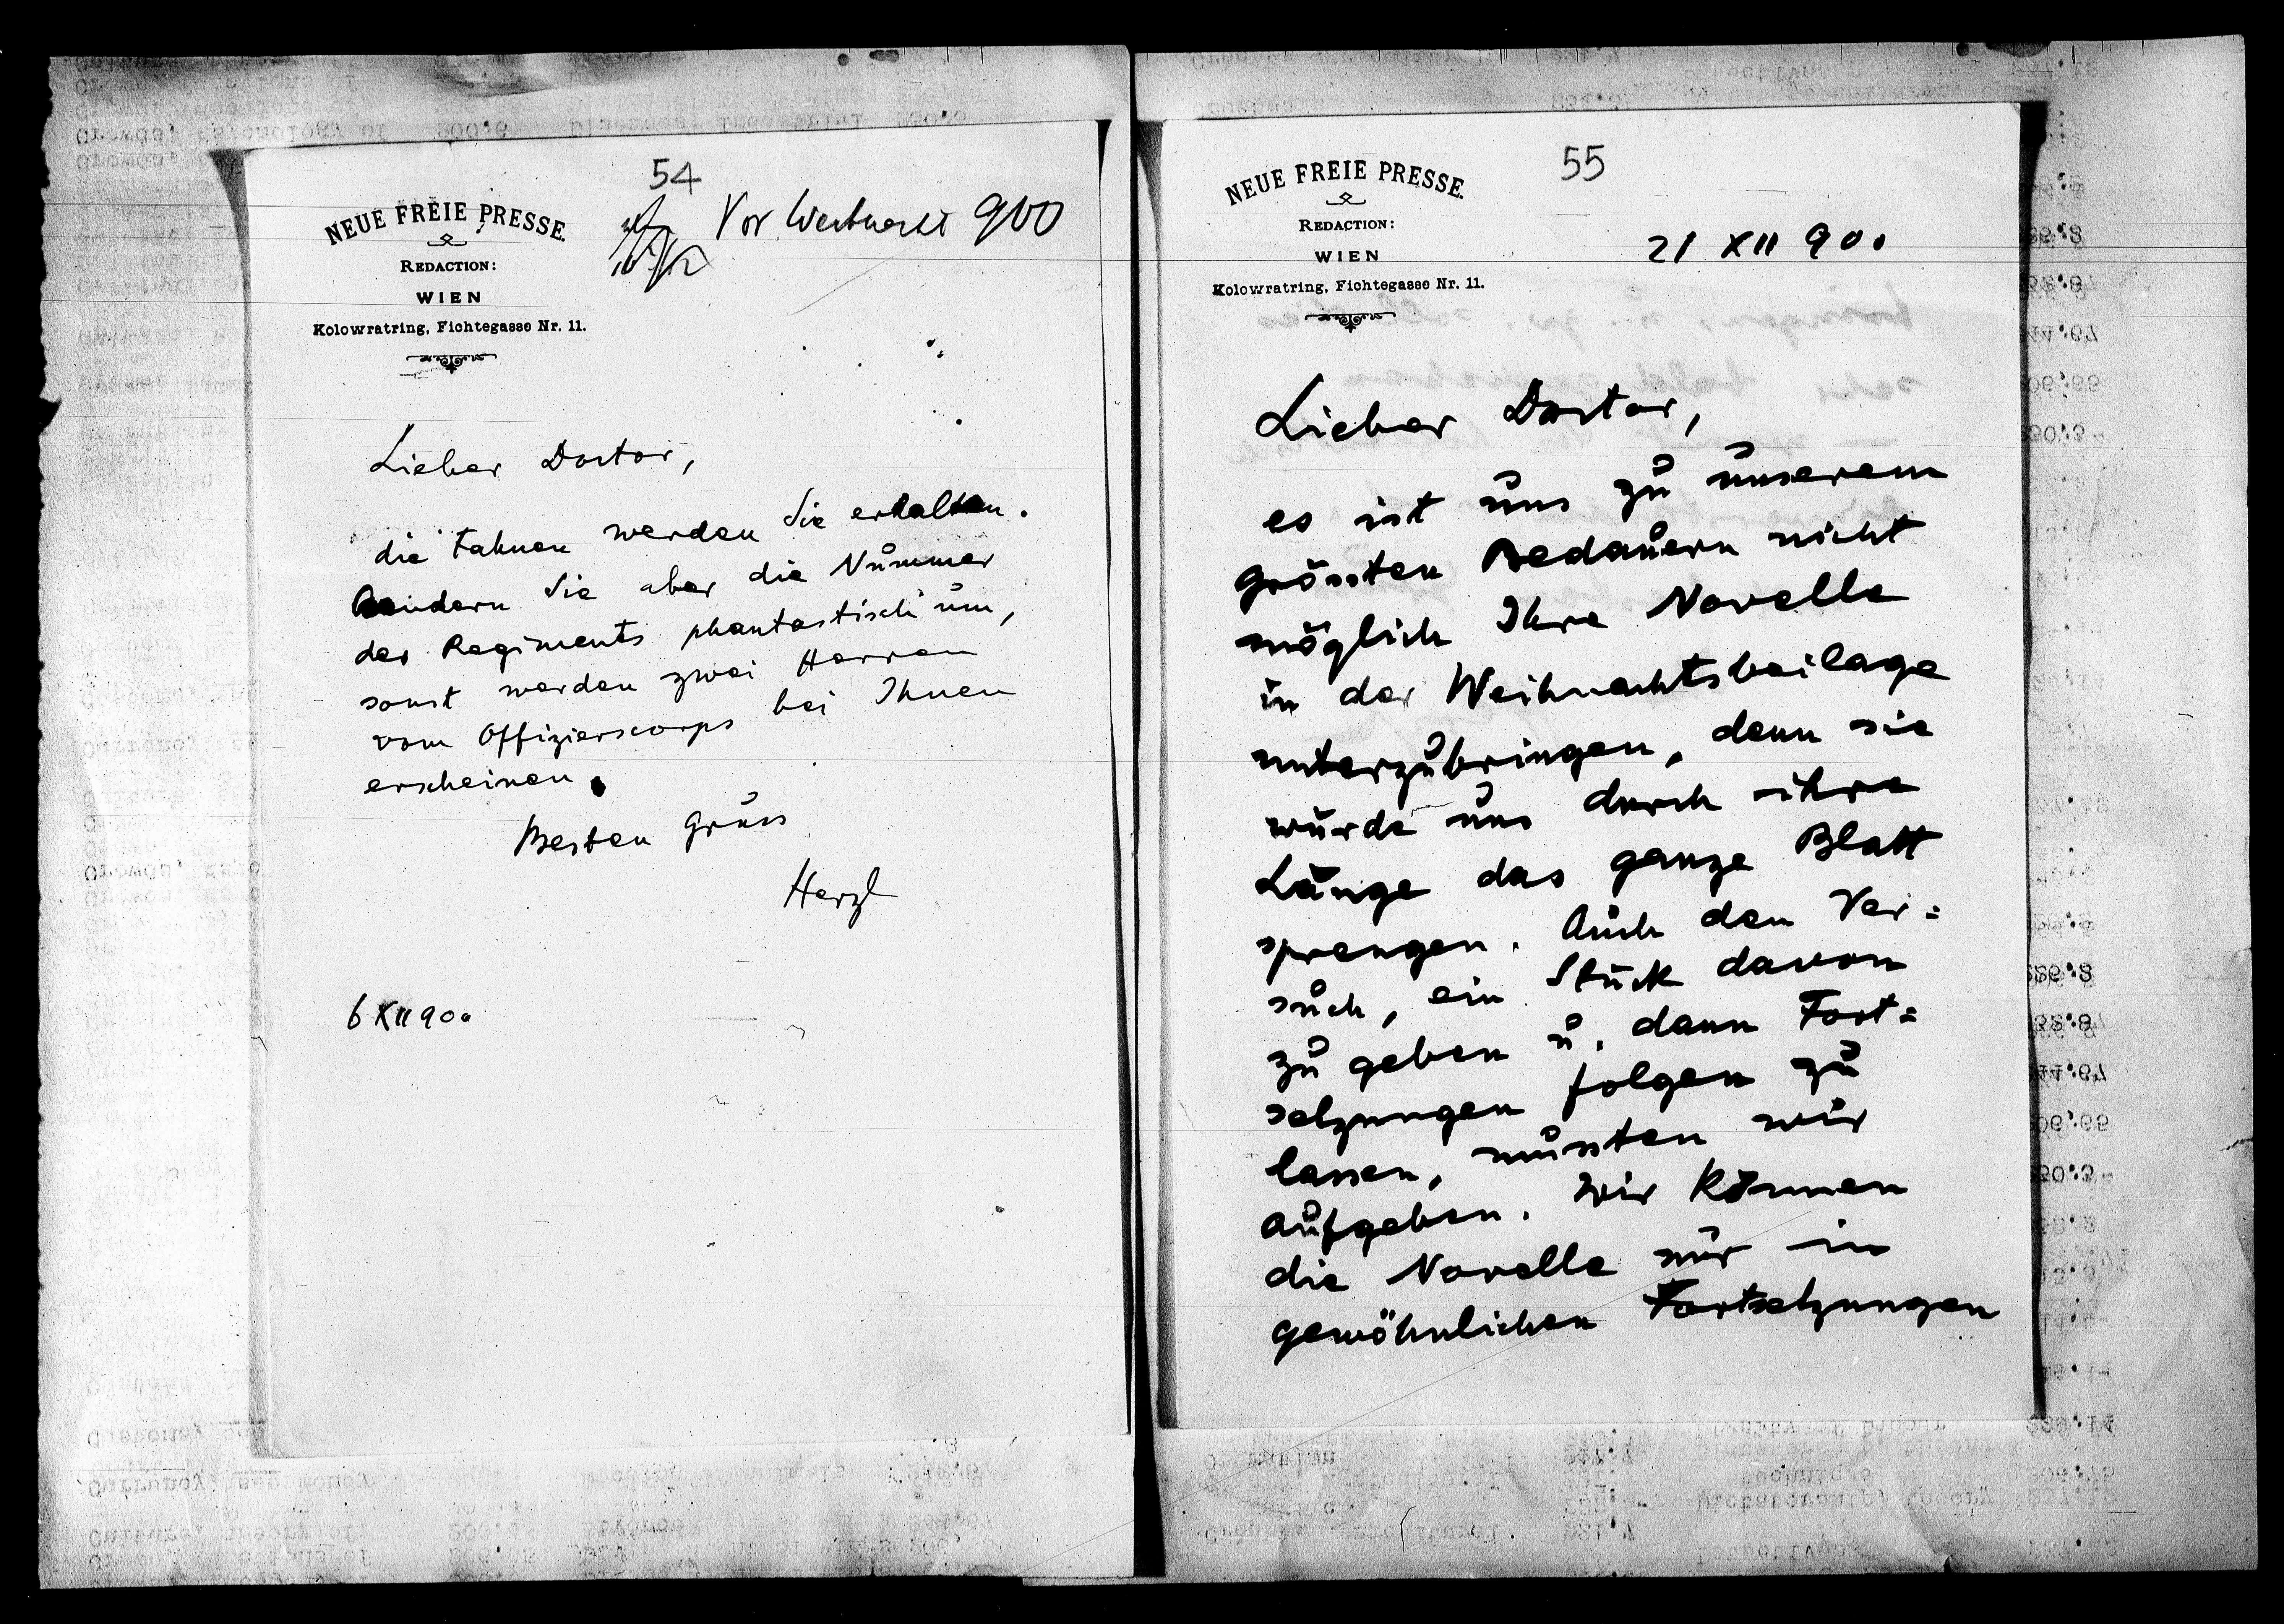 54
NEUE FREIE PRESSE.
REDACTION:
WIEN
Kolowratring, Fichtegasse Nr. 11.
Vor 900
Lieber Doctor,
die Fahnen werden Sie erhalten.
Aendern Sie aber die Nummer
des Regiments phantastisch um,
sonst werden zwei Herren
vom Offizierscorps bei Ihnen
erscheinen.
Besten Gruss
Herzl
6 XII 900
55
NEUE FREIE PRESSE.
REDACTION:
WIEN
Kolowratring, Fichtegasse Nr. 11.
21 XII 900
Lieber Doctor,
es ist uns zu unserem
grössten Bedauern nicht
möglich Ihre Novelle
in der Weihnachtsbeilage
unterzubringen, denn sie
würde uns durch ihre
Länge das ganze Blatt
sprengen. Auch den Ver=
such, ein Stück davon
zu geben u. dann Fort=
setzungen folgen zu
lassen, mussten wir
aufgeben. Wir können
die Novelle nur in
gewöhnlichen Fortsetzungen